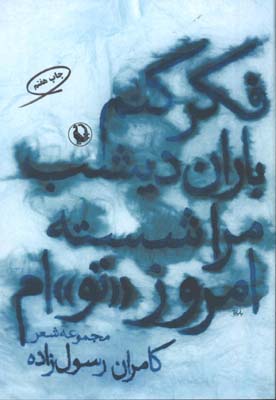 چاپ هفتم
فکر کنم
باران دیشب
مرا شسته
امروز «تو»ام
مجموعه شعر
کامران رسول‌زاده